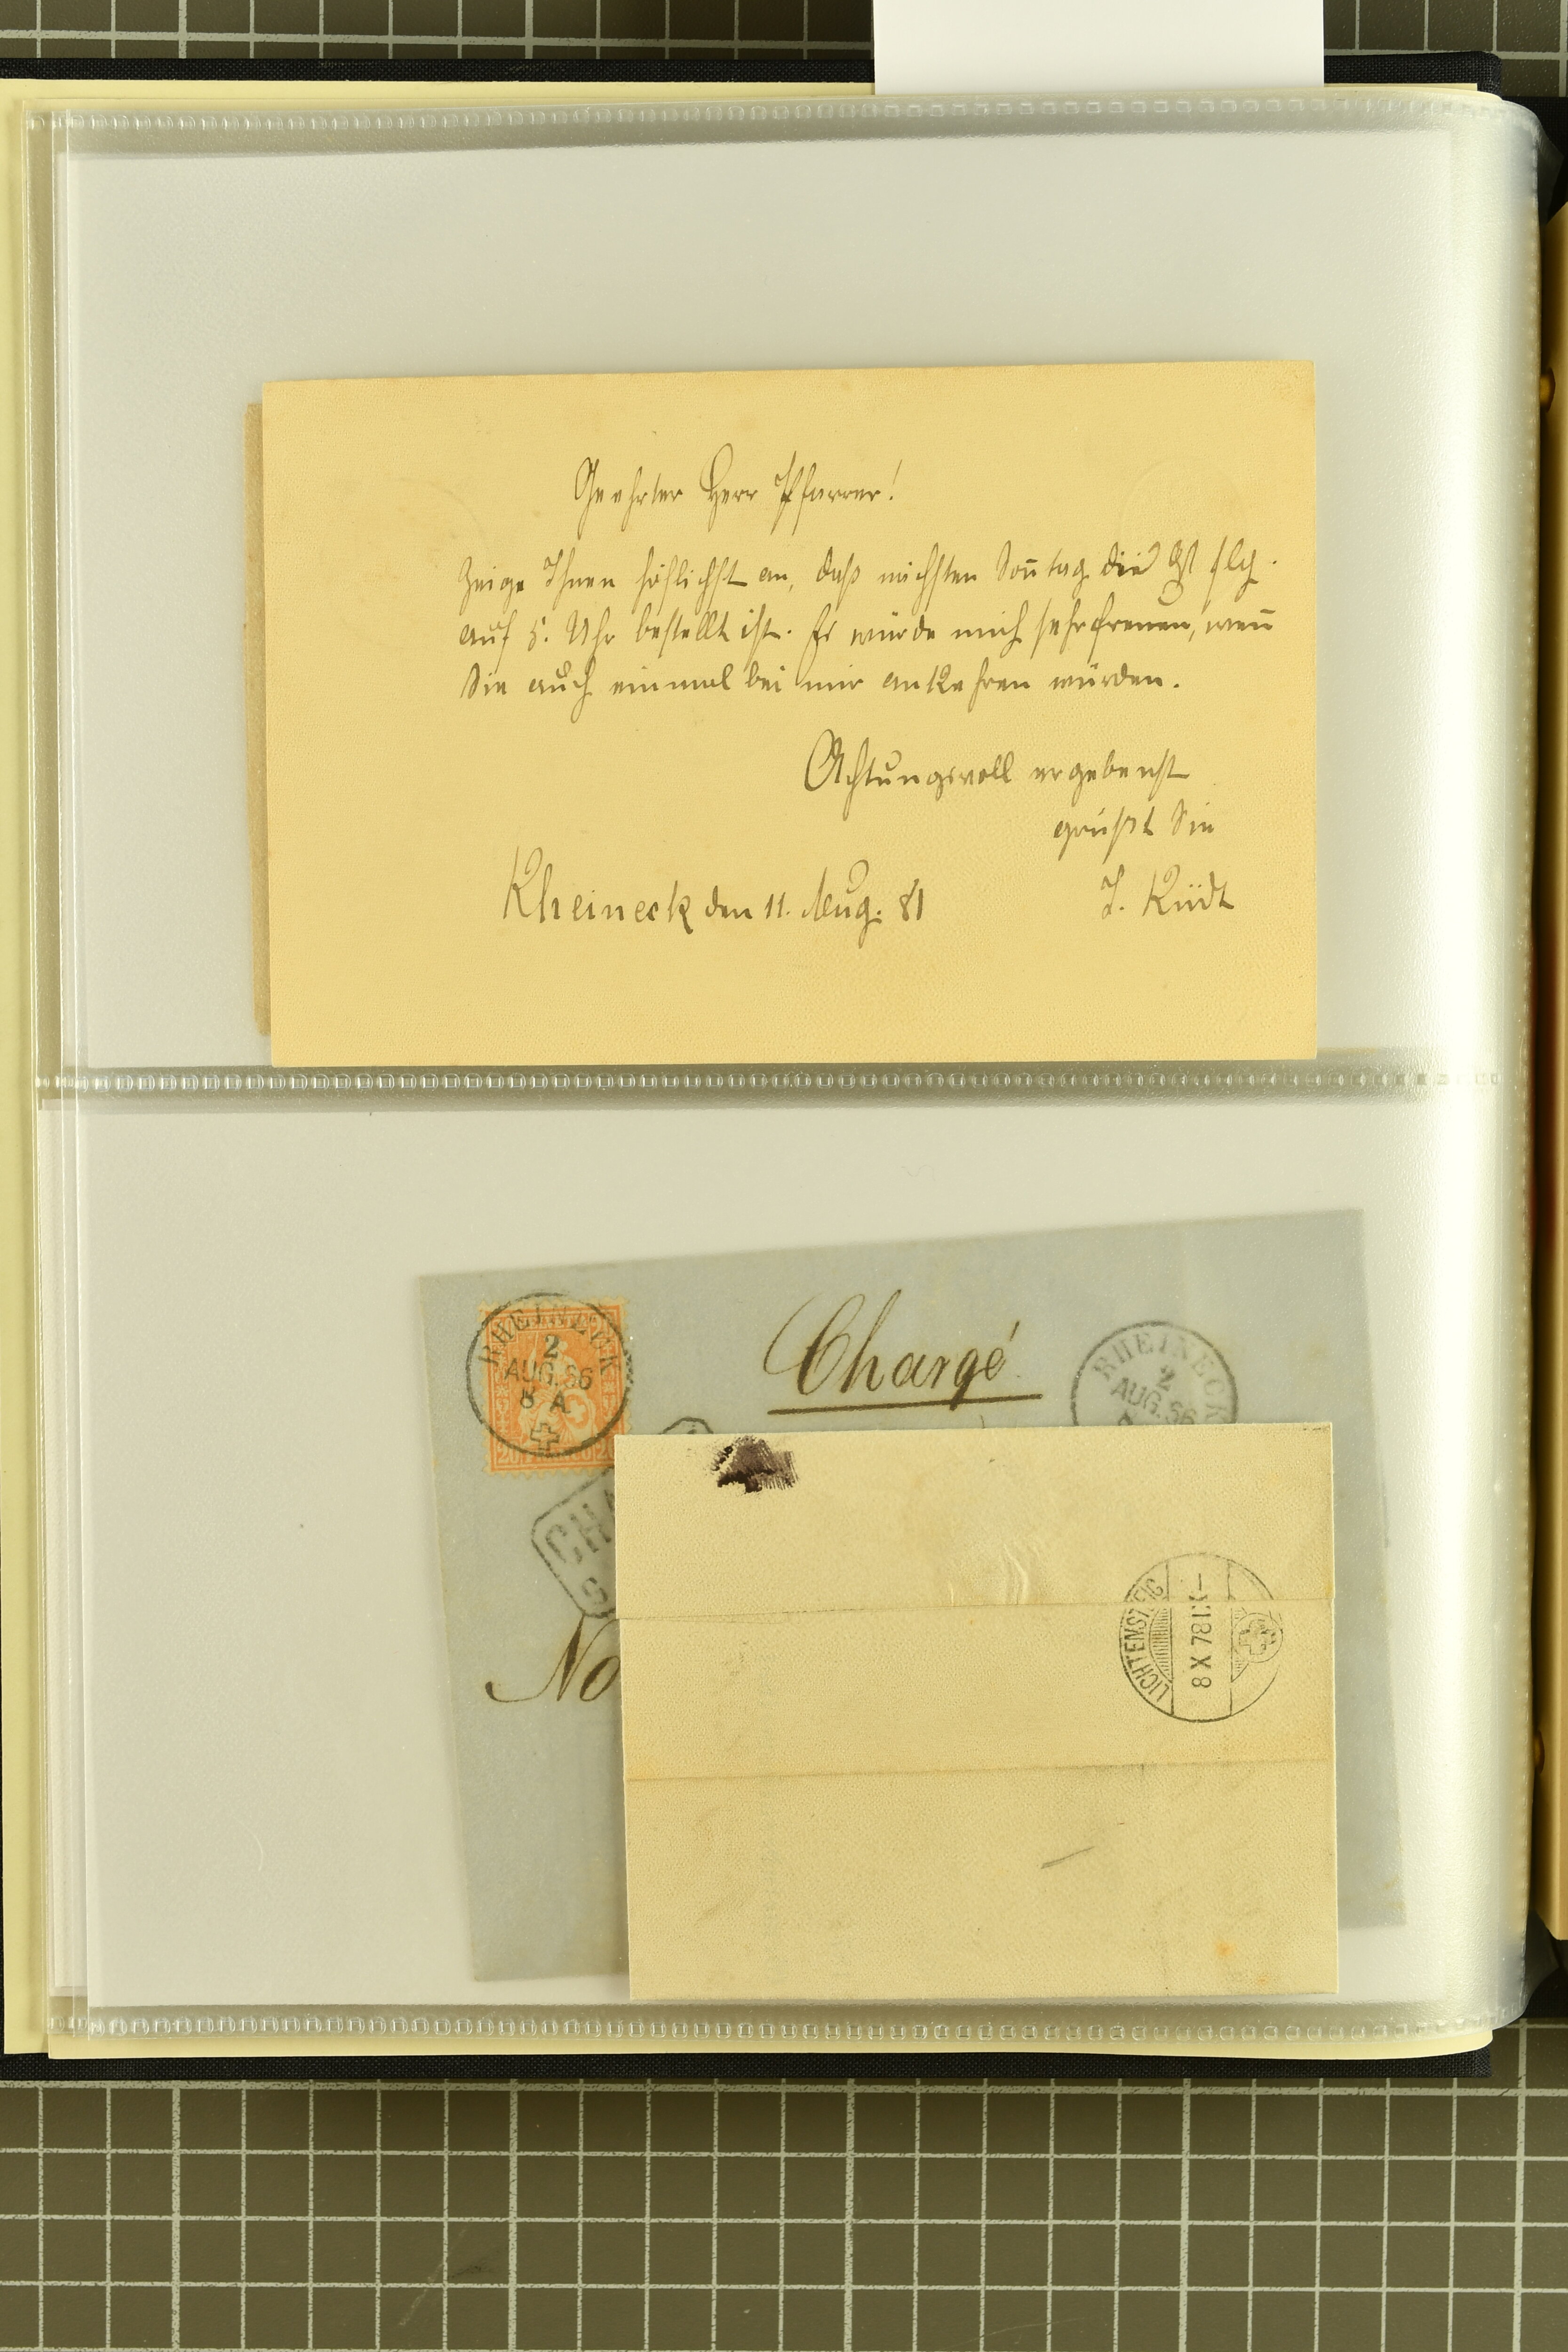 Geehrter Herr Pfarrer!
Zeige Ihnen höflichst an, daß nächsten Son̄tag die
auf 5. Uhr bestellt ist. Es würde mich sehr freuen, wen̄
Sie auch einmal bei mir ankehren würden.
Achtungsvoll ergebenst
grüßt Sie
Rheineck den 11. Aug. 81
J. Küdt
RHEINECK
2
AUG. 66
8 A
20
Chargé
RHEINECK
2
AUG. 66
CHA
No
LICHTENSTEIG
8 X 78 IX–